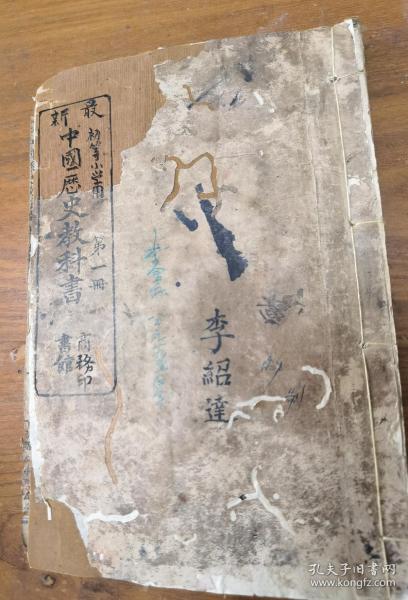 最新
初等小學用
中國歷史教科書
第一冊
商務印
書館
李紹達
孔夫子旧书网
www.kongfz.com